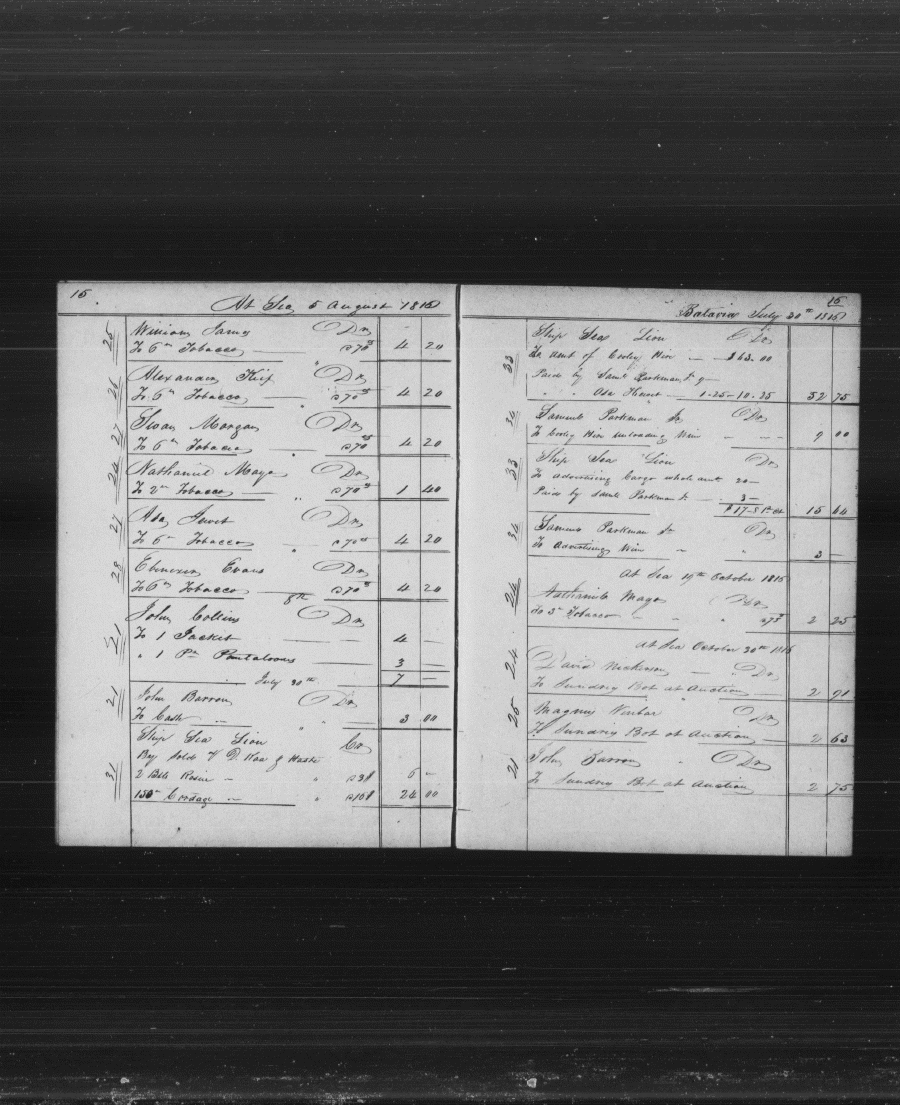 15
At Sea 5 August 1815
25 William James Dr
To 6 lb Tobacco @ 70 4 20
26 Alexander Dr
To 6 lb Tobacco @ 70 4 20
27 Swan Morgan Dr
To 6 lb Tobacco @ 70 4 20
24 Nathaniel Mayo Dr
To 2 lb Tobacco @ 70 1 40
27 Ada Dr
To 6 lb Tobacco @ 70 4 20
28 Ebenezer Evans Dr
To 6 lb Tobacco @ 70 4 20
8th
21 John Collins Dr
To 1 Jacket 4 —
" 1 Pr Pantaloons 3 —
7 —
July 30th
21 John Barron Dr
To Cash 3 00
31 Ship Sea Lion Cr
By Sold V. D. &
2 Bbls Rosin — " @ 3$ 6 —
150 lb Cordage — " @ 16$ 24 00
15
Batavia July 30th 1815
33 Ship Sea Lion Dr
To amt of Cooley Hire — $63.00
Paid by Saml Parkman Jr 9 —
" " Ada — 1.25 — 10.25 52 75
34 Samuel Parkman Jr Dr
To Cooley Hire unloading Wine 9 00
33 Ship Sea Lion Dr
To advertising Cargo whole amt 20 —
Paid by Saml Parkman Jr — 3 —
$17 15 64
34 Samuel Parkman Jr Dr
To Advertising Wine — " 3 —
At Sea 19th October 1815
24 Nathaniel Mayo Dr
To 3 lb Tobacco — " @ 75 2 25
At Sea October 30th 1815
24 David Nickerson — " Dr
To Sundry Bot at Auction 2 91
25 Magnus Dr
To Sundry Bot at Auction 2 63
21 John Barron " Dr
To Sundry Bot at Auction 2 75